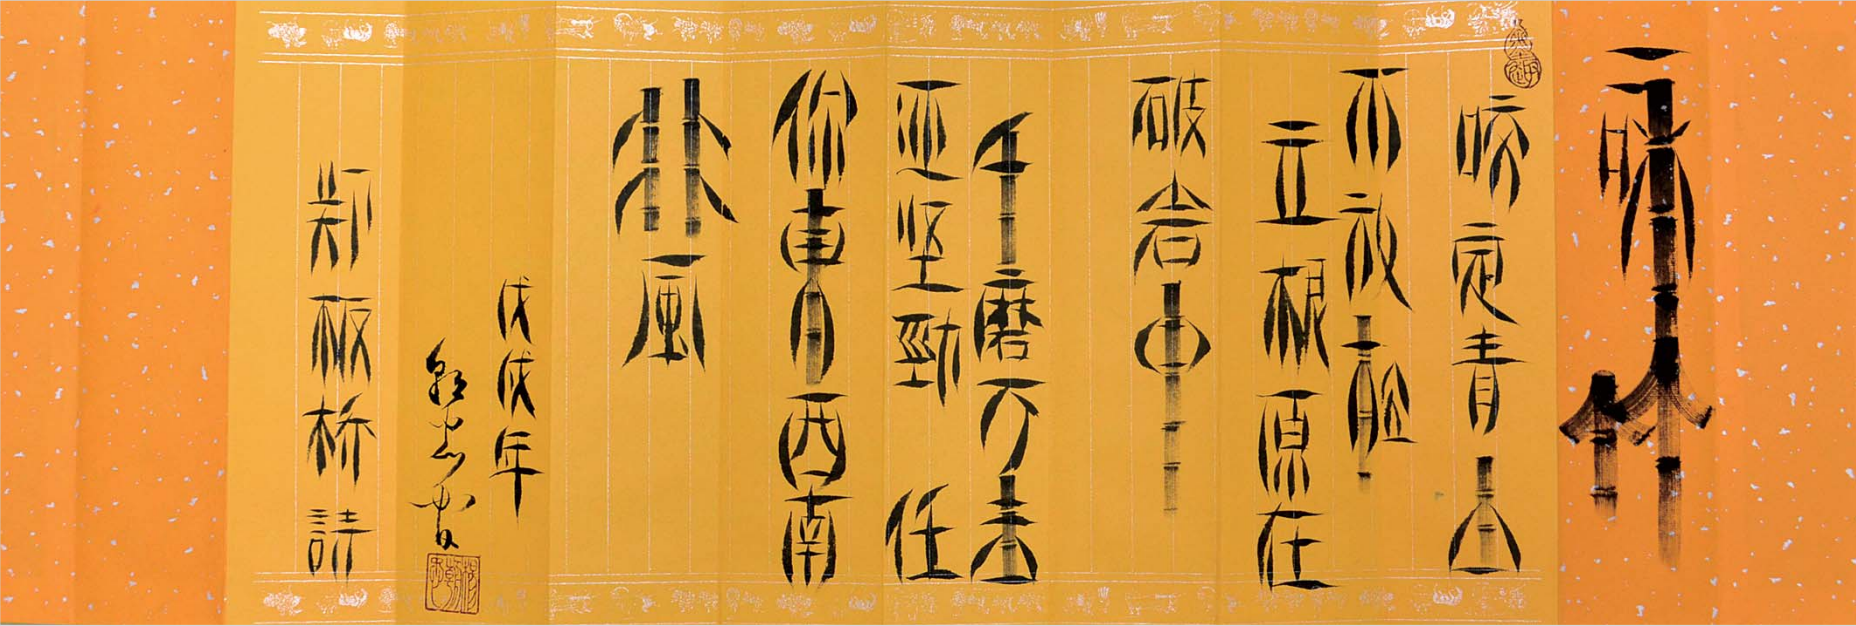 咏竹
咬定青山
不放松
立根原在
破岩中
千磨万击
还坚勁 任
你東西南
北風
戊戌年
郑板桥詩